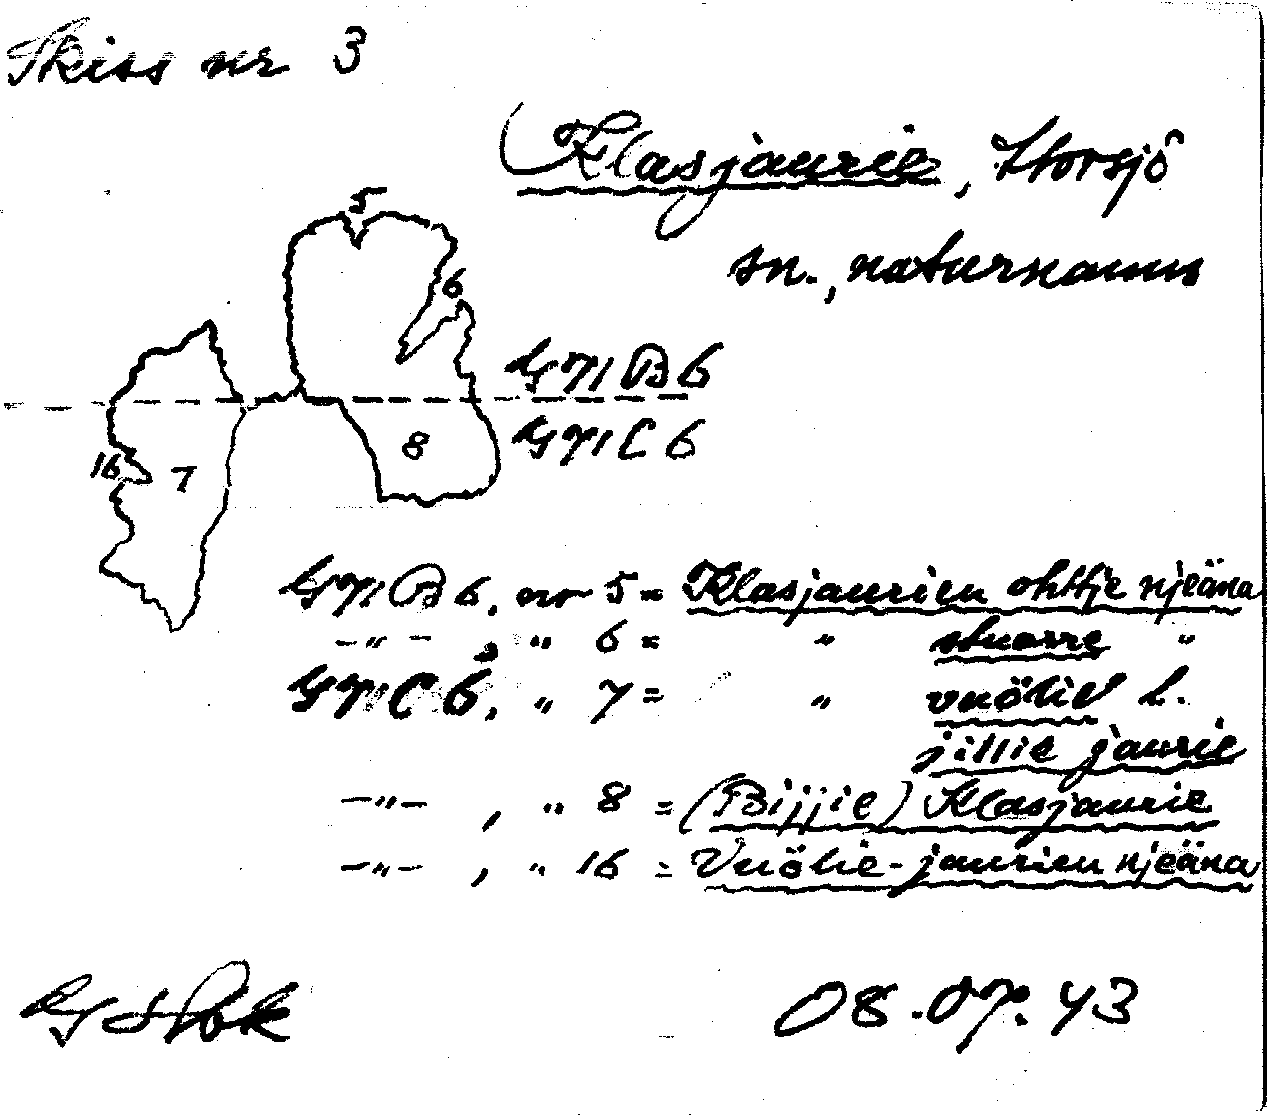 Skiss nr 3
Klasjaurie, Storsjö
sn., naturnamn
5
6
GVIB6
8
GVIC6
16 7
GVIB6, nr 5 = Klasjaurien ohttje njeäna
-"- , " 6 = " stuorre "
GVIC6, " 7 = " vuölie l.
jillie jaurie
-"- , " 8 = (Bijjie) Klasjaurie
-"- , " 16 = Vuölie-jaurien njeäna
08.07.43